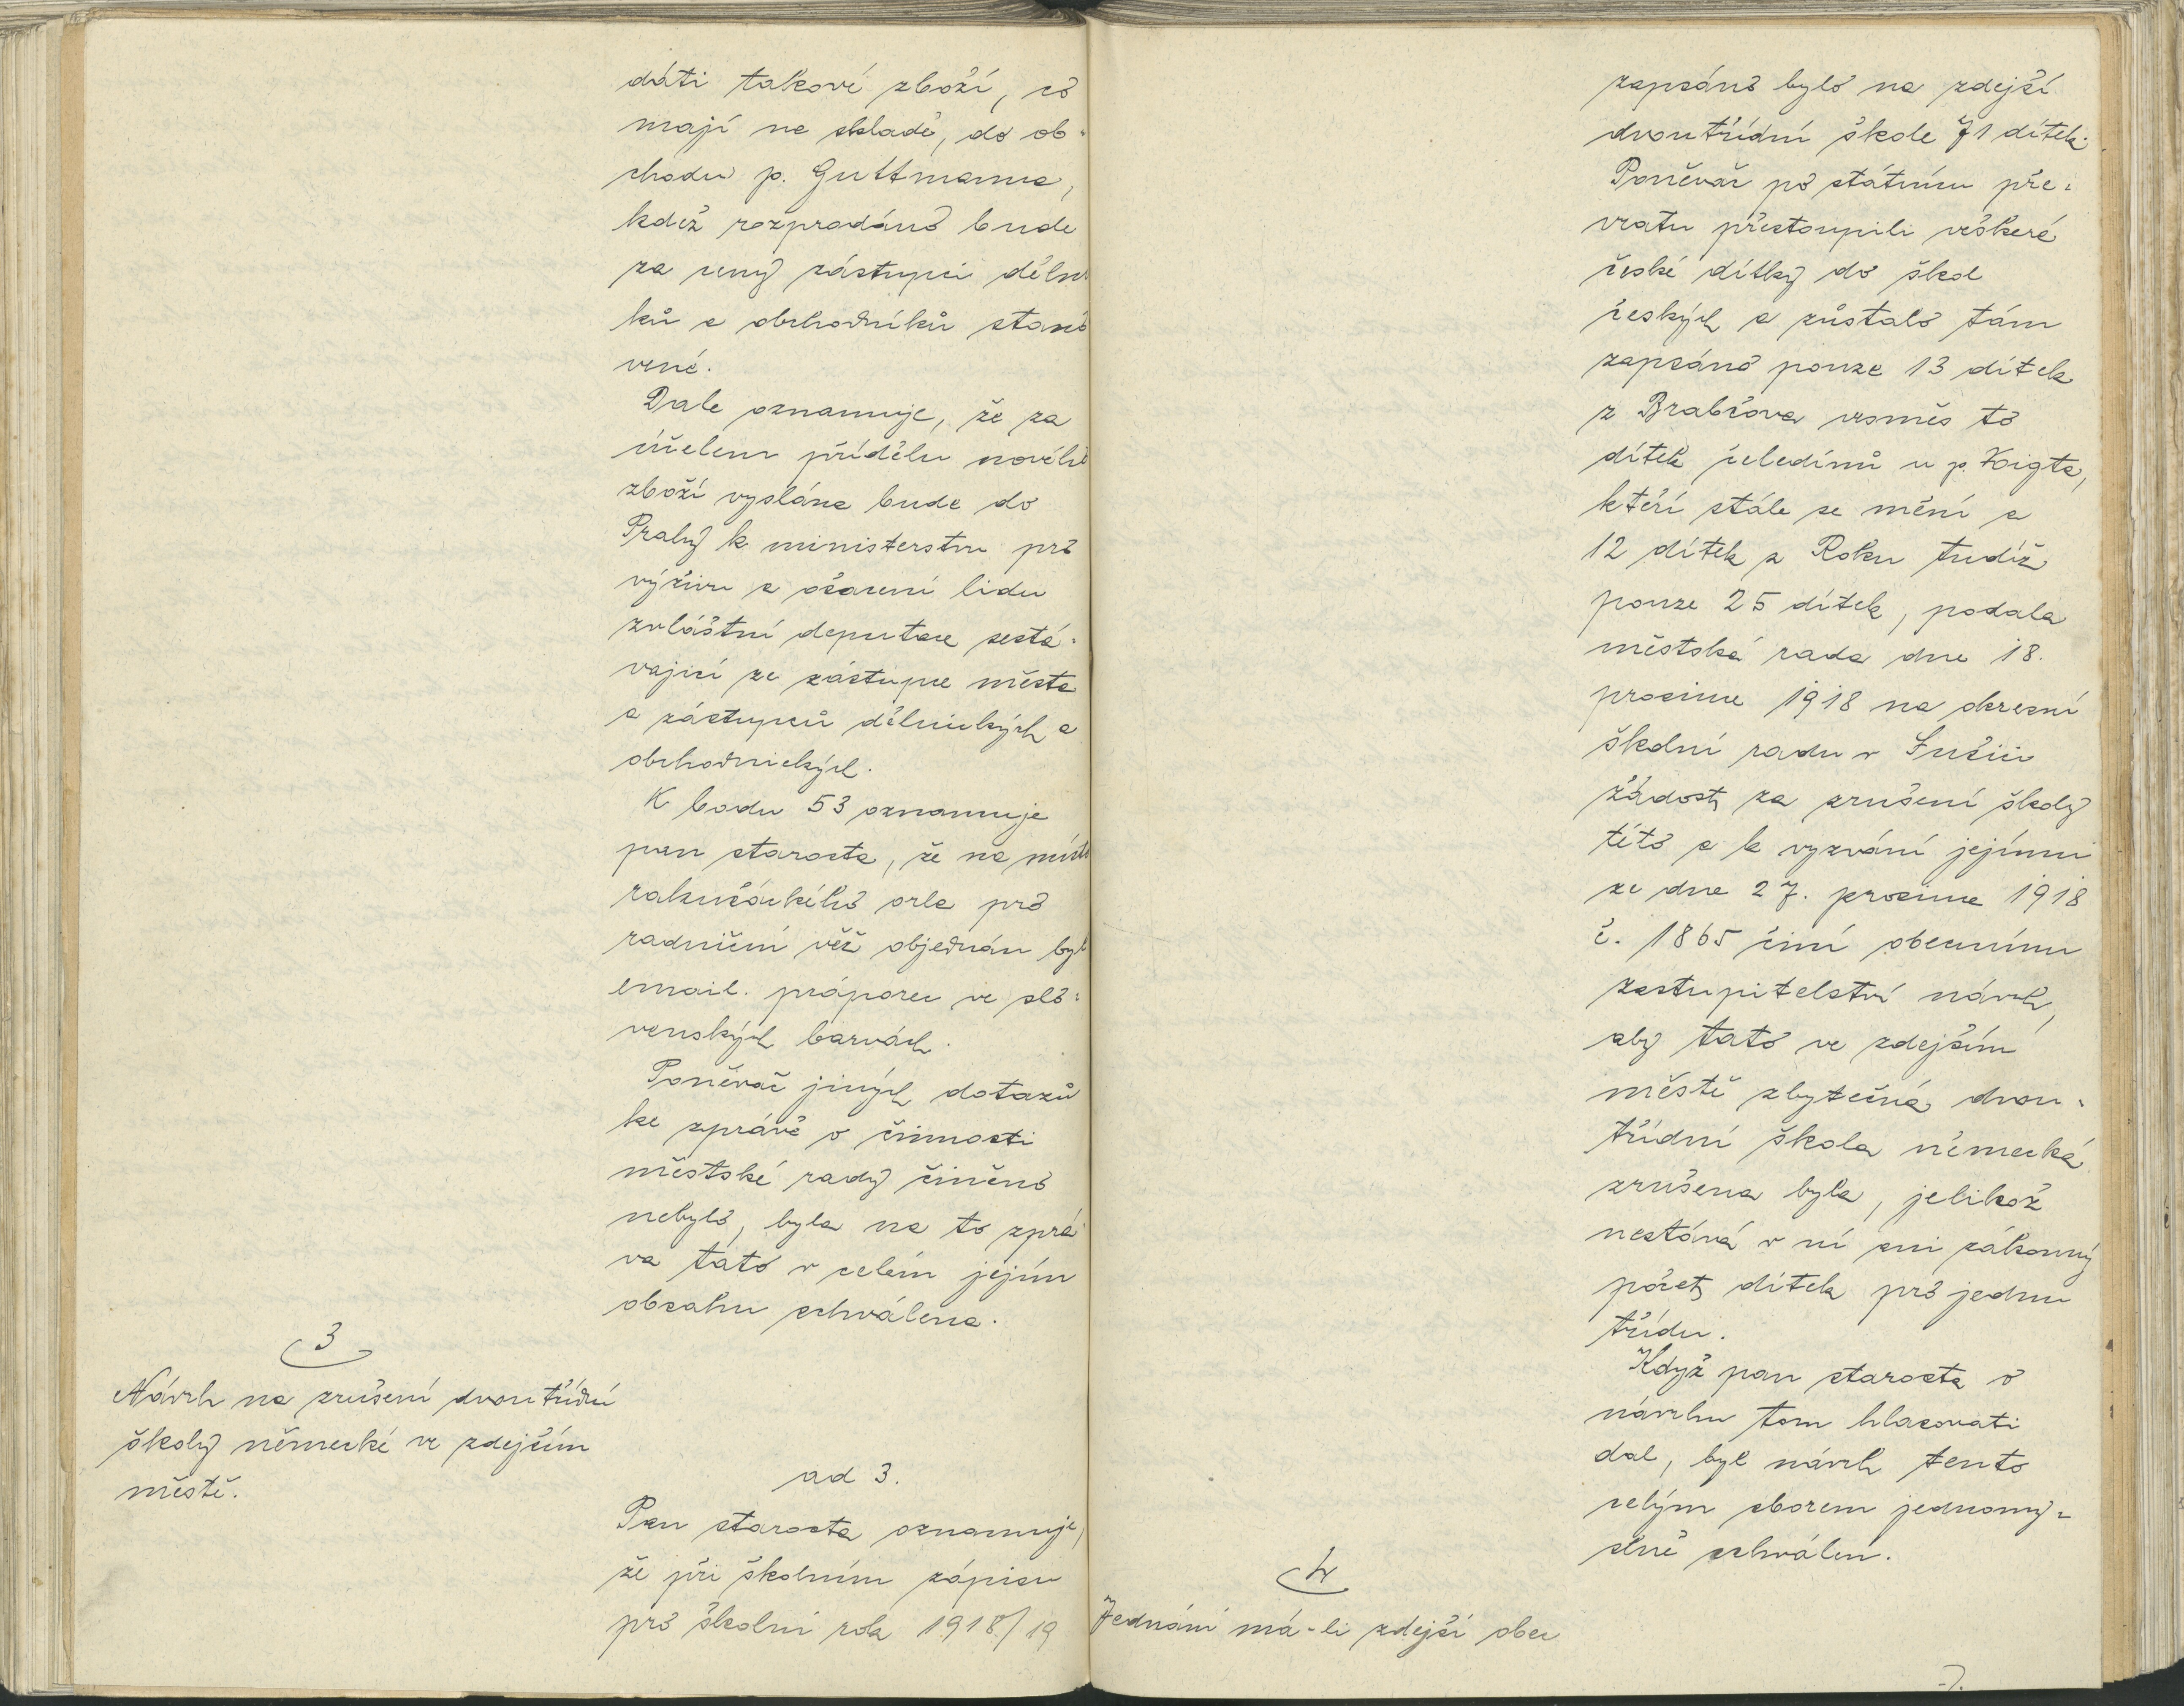 dáti takové zboží, co
mají na skladě, do ob-
chodu p. Guttmanna,
kdež rozprodáno bude
za ceny zástupci děln
ků a obchodníků stano
vené.
Dale oznamuje, že za
účelem přídělu nového
zboží vyslána bude do
Prahy k ministerstvu pro
výživu a ošacení lidu
zvláštní deputace sestá-
vající ze zástupce města
a zástupců dělnických a
obchodnických.
K bodu 53 oznamuje
pan starosta, že na místo
rakušáckého orla pro
radniční věž objednán byl
email. práporec ve slo-
venských barvách.
Poněvač jiných dotazů
ke zprávě o činnosti
městské rady činěno
nebylo, byla na to zprá
va tato v celém jejím
obsahu schválena.
3
Návrh na zrušení dvoutřídní
školy německé ve zdejším
městě.
ad 3.
Pan starosta oznamuje,
že při školním zápisu
pro školní rok 1918/19
zapsáno bylo na zdejší
dvoutřídní škole 71 dítek.
Poněvač po státním pře-
vratu přestoupili veškeré
české dítky do škol
českých a zůstalo tám
zapsáno pouze 13 dítek
z Brabčova vesměs to
dítek čeledínů u p. Voigta,
kteří stále se mění a
12 dítek z Roku tudíž
pouze 25 dítek, podala
městská rada dne 18.
prosince 1918 na okresní
školní radu v Sušici
žádost za zrušení školy
této a k vyzvání jejímu
ze dne 27. prosince 1918
č. 1865 činí obecnímu
zastupitelství návrh,
aby tato ve zdejším
městě zbytečná dvou-
třídní škola německá
zrušena byla, jelikož
nestává v ní ani zákonný
počet dítek pro jednu
třídu.
Když pan starosta o
návrhu tom hlasovati
dal, byl návrh tento
celým sborem jednomy-
slně schválen.
4
Jednání má-li zdejší obec
7.